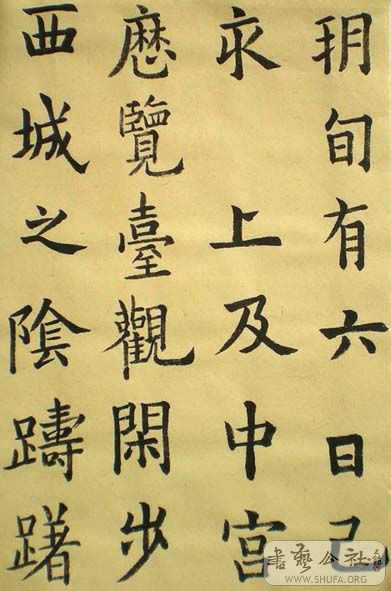 朔旬有六日己
亥 上及中宮
歷覽臺觀閑步
西城之陰躊躇
書藝公社
WWW.SHUFA.ORG